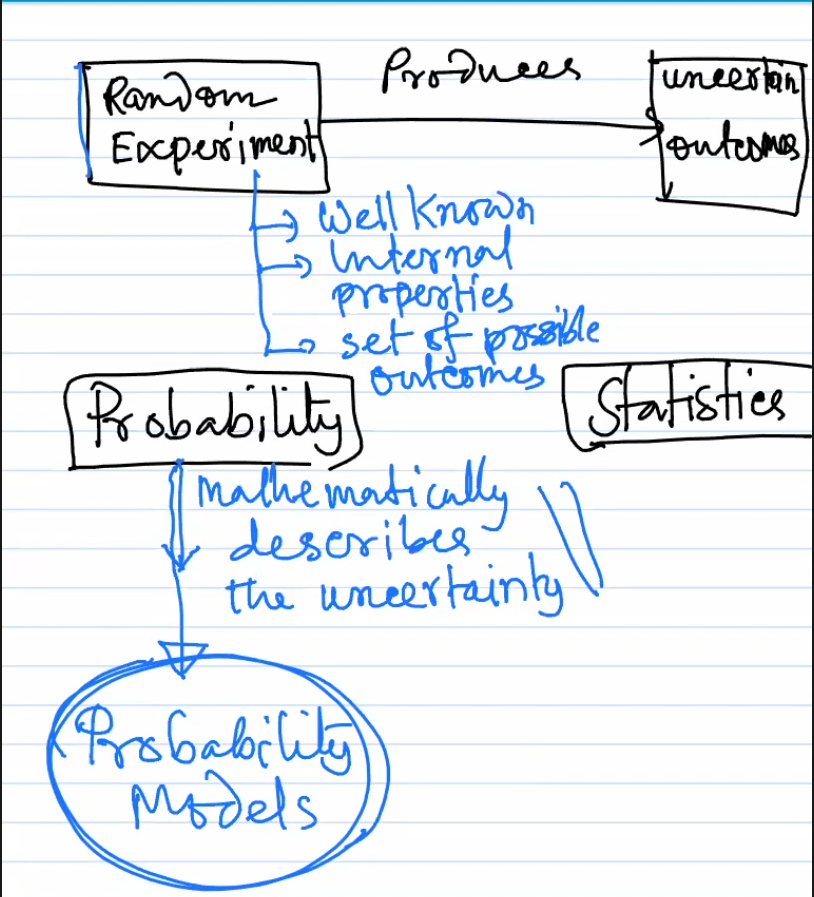 Random
Experiment
Produces
uncertain
outcomes
Well Known
Internal
properties
set of possible
outcomes
Probability
Statistics
Mathematically
describes
the uncertainty
Probability
Models